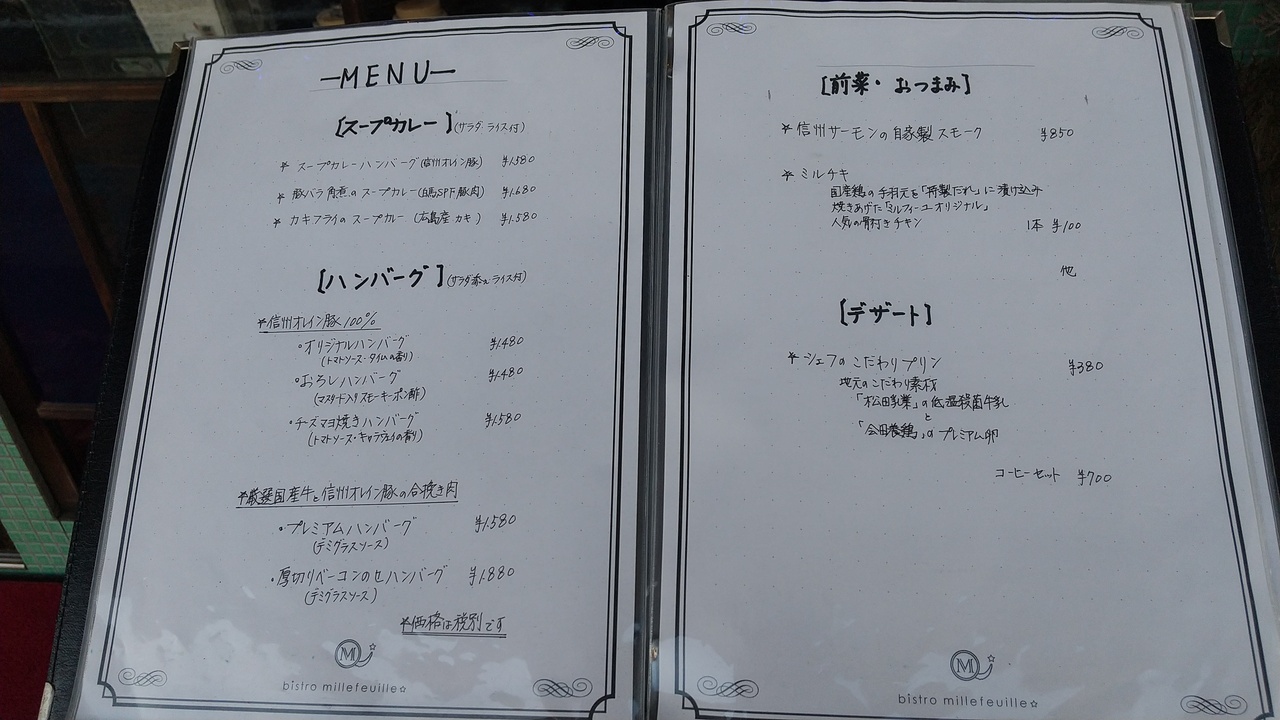 MENU
【スープカレー】(サラダ ライス付)
* スープカレーハンバーグ(信州オレイン豚) ¥1.580
* 豚バラ角煮のスープカレー(白馬SPF豚肉) ¥1.680
* カキフライのスープカレー(広島産カキ) ¥1.580
【ハンバーグ】(サラダ添え ライス付)
*信州オレイン豚100%
・オリジナルハンバーグ ¥1.480
(トマトソース・タイムの香り)
・おろしハンバーグ ¥1.480
(マスタード入りスモーキーポン酢)
・チーズマヨ焼きハンバーグ ¥1.580
(トマトソース・キャラウェイの香り)
*厳選国産牛と信州オレイン豚の合挽き肉
・プレミアムハンバーグ ¥1.580
(デミグラスソース)
・厚切りベーコンのせハンバーグ ¥1.880
(デミグラスソース)
*価格は税別です
M
bistro millefeuille☆
【前菜・おつまみ】
* 信州サーモンの自家製スモーク ¥850
* ミルチキ
国産鶏の手羽元を「特製だれ」に漬け込み
焼きあげた「ミルフィーユオリジナル」
人気の骨付きチキン 1本 ¥100
他
【デザート】
* シェフのこだわりプリン ¥380
地元のこだわり素材
「松田乳業」の低温殺菌牛乳
と
「会田養鶏」のプレミアム卵
コーヒーセット ¥700
M
bistro millefeuille☆